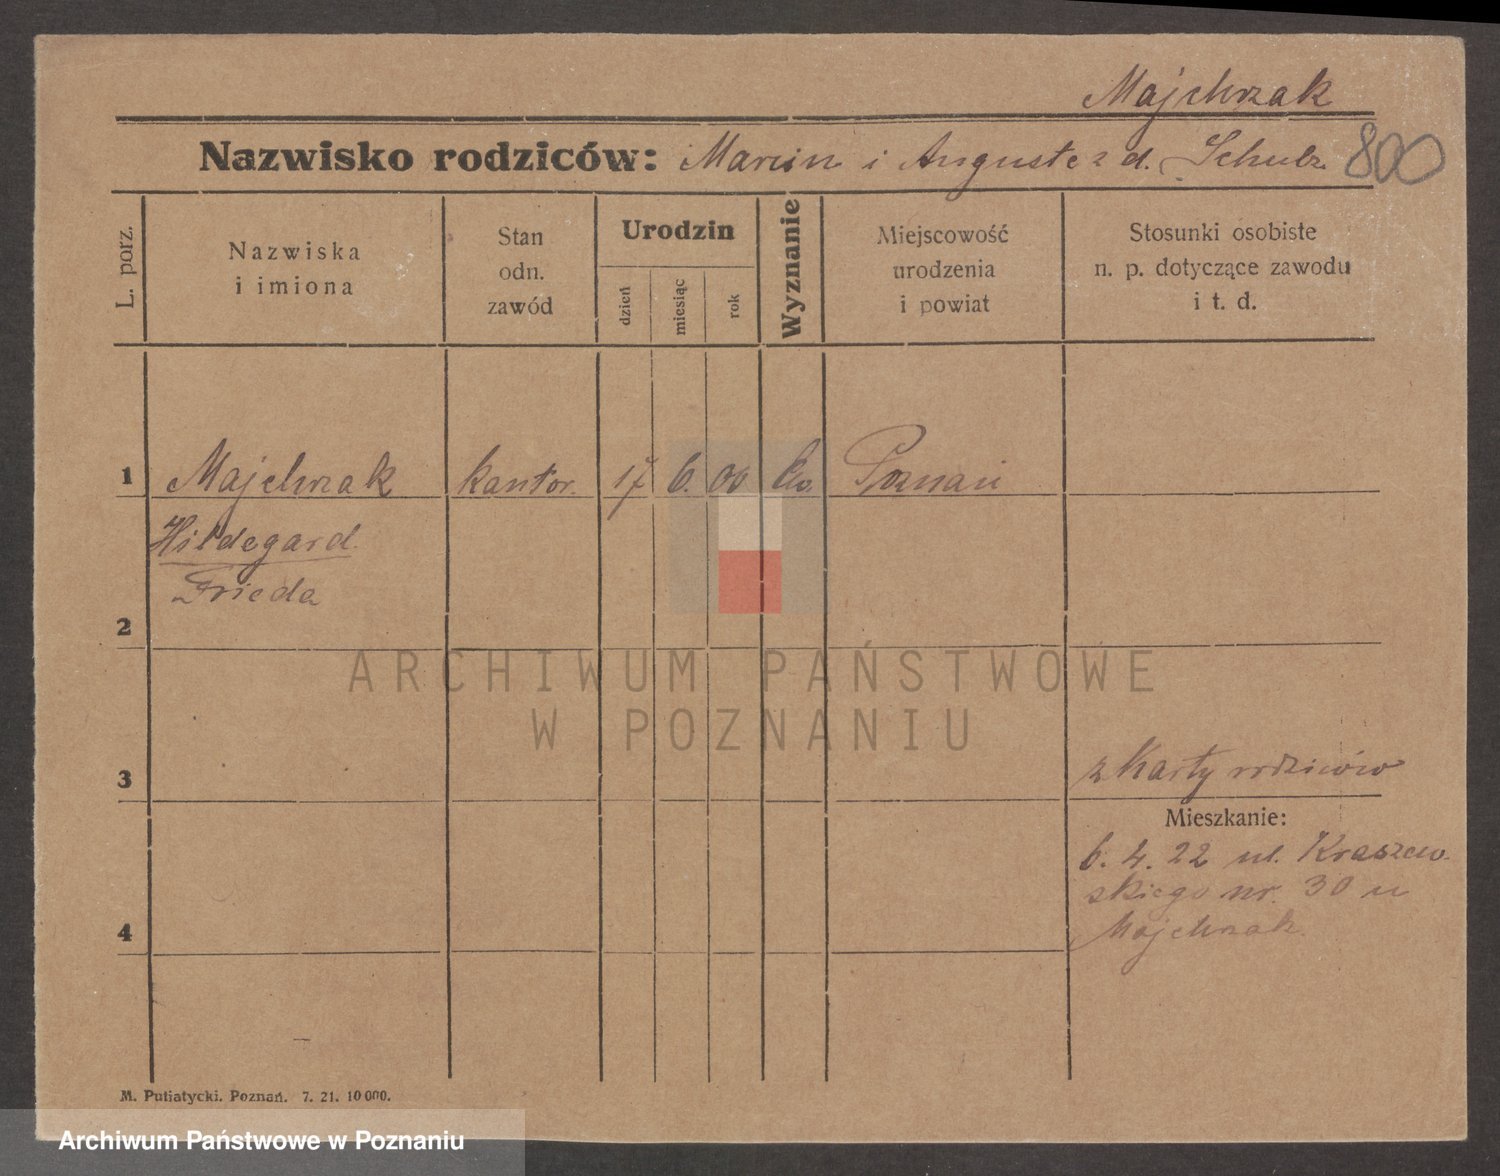 Majchrzak
Nazwisko rodziców: Marcin i Auguste z d. Schulz 800
L. porz.
Nazwiska
i imiona
Stan
odn.
zawód
Urodzin
dzień
miesiąc
rok
Wyznanie
Miejscowość
urodzenia
i powiat
Stosunki osobiste
n. p. dotyczące zawodu
i t. d.
1 Majchrzak kantor. 17 6. 00 Poznań
Hildegard
Frieda
2
ARCHIWUM PAŃSTWOWE
W POZNANIU
3 z Karty rodziców
Mieszkanie:
6. 4. 22 ul. Kraszew-
skiego nr. 30 u
4 Majchrzak
M. Putiatycki. Poznań. 7. 21. 10 000.
Archiwum Państwowe w Poznaniu